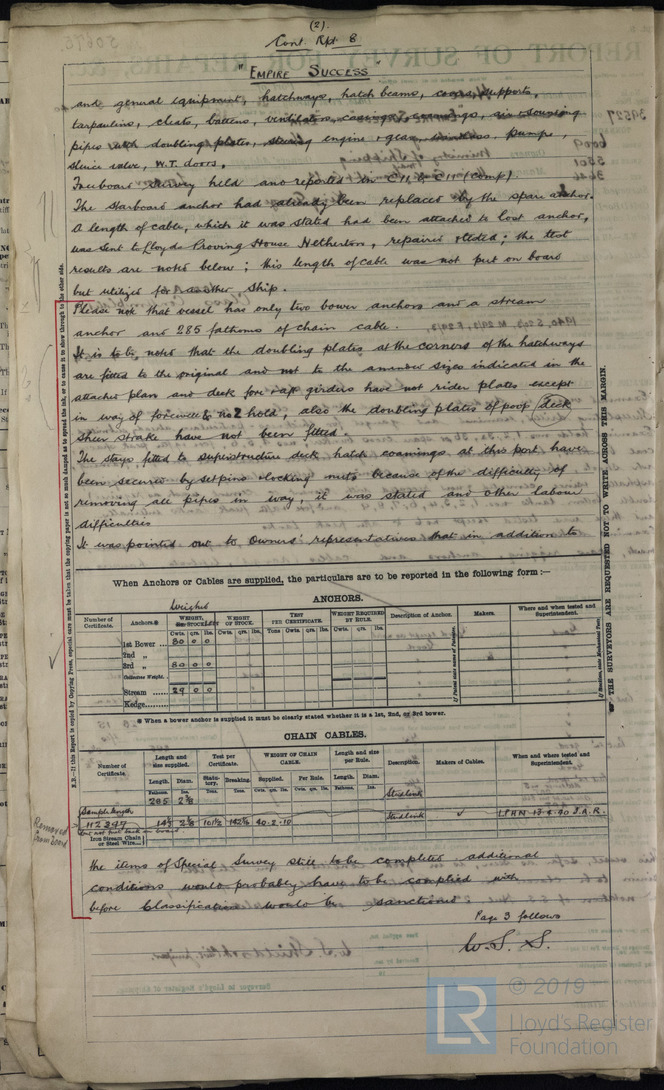 (2).
Cont. Rpt. 8.
"EMPIRE SUCCESS"
and general equipment, hatchways, hatch beams, supports,
tarpaulins, cleats, battens, ventilators, casings, coamings, air & sounding
pipes with doubling plates, steering engine & gear, windlass, pumps,
sluice valve, W.T. doors.
Freeboard survey held and reported on C11 & C11 (comp)
The starboard anchor had already been replaced by the spare anchor.
A length of cable, which it was stated had been attached to lost anchor,
was sent to Lloyds Proving House Netherton, repaired & tested; the test
results are noted below; this length of cable was not put on board
but utilized for another ship.
Please note that vessel has only two bower anchors and a stream
anchor and 285 fathoms of chain cable.
It is to be noted that the doubling plates at the corners of the hatchways
are fitted to the original and not to the amended sizes indicated in the
attached plan and deck fore & aft girders have not rider plates except
in way of forewell & No 2 hold, also the doubling plates of poop deck
sheer strake have not been fitted.
The stays fitted to superstructure deck hatch coamings at this port have
been secured by set pins & locking nuts because of the difficulty of
removing all pipes in way, it was stated and other labour
difficulties
It was pointed out to Owners' representatives that in addition to
When Anchors or Cables are supplied, the particulars are to be reported in the following form :—
ANCHORS.
Weights
Number of Certificate. Anchors.* WEIGHT, STOCK. WEIGHT OF STOCK. TEST PER CERTIFICATE. WEIGHT REQUIRED BY RULE. Description of Anchor. Makers. Where and when tested and Superintendent.
Cwts. qrs. lbs. Cwts. qrs. lbs. Tons Cwts. qrs. lbs. Cwts. qrs. lbs.
1st Bower ... 80 0 0
2nd „
3rd „ 80 0 0
Collective Weight.
Stream 29 0 0
Kedge
* When a bower anchor is supplied it must be clearly stated whether it is a 1st, 2nd, or 3rd bower.
CHAIN CABLES.
Number of Certificate. Length and size supplied. Test per Certificate. WEIGHT OF CHAIN CABLE. Length and size per Rule. Description. Makers of Cables. When and where tested and Superintendent.
Length. Diam. Statutory. Breaking. Supplied. Per Rule. Length. Diam.
Fathoms. Ins. Tons. Tons. Cwts. qrs. lbs. Cwts. qrs. lbs. Fathoms. Ins.
285 2 3/8 Studlink
Sample length
Studlink
but not put back on board
Iron Stream Chain or Steel Wire
Removed from Board
the items of Special Survey still to be completed additional
conditions would probably have to be complied with
before Classification would be sanctioned
Page 3 follows
W. S. S.
N.B.—If this Report is copied by Copying Press, especial care must be taken that the copying paper is not so much damped as to spread the ink, or to cause it to show through to the other side.
THE SURVEYORS ARE REQUESTED NOT TO WRITE ACROSS THIS MARGIN.
LR
© 2019
Lloyd's Register
Foundation